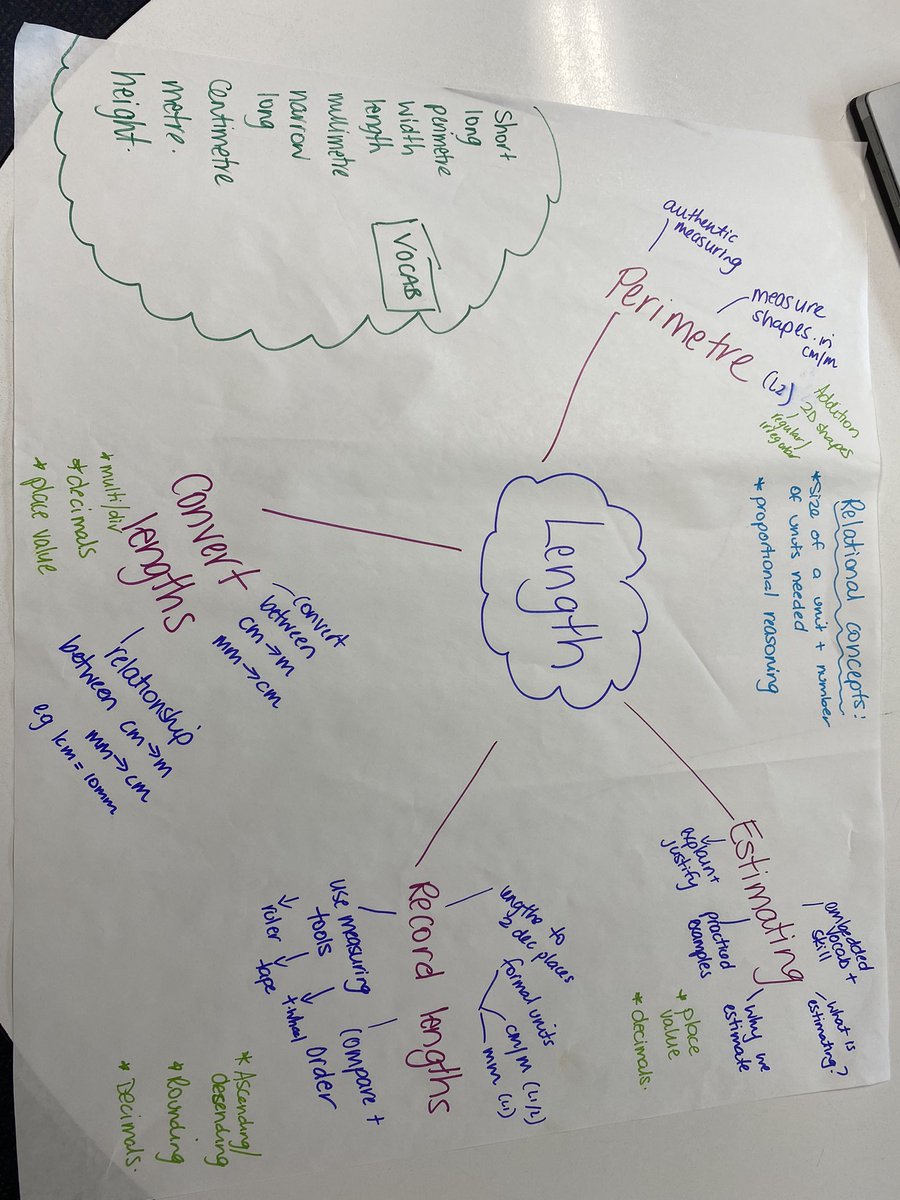 Length
Perimetre (L2)
authentic
measuring
measure
shapes in
cm/m
Addiction
2D shapes
regular/
irregular
Relational concepts:
*size of a unit + number
of units needed
* proportional reasoning
Estimating
explain +
justify
practical
examples
why we
estimate
embedded
vocab +
skill
what is
estimating?
* place
value
* decimals.
Record lengths
lengths to
2 dec places
formal units
cm/m (L1/2)
mm (L1)
use measuring
tools
ruler
tape
t.wheel
compare +
order
* Ascending/
desending
* Rounding
* Decimals.
Convert
lengths
convert
between
cm → m
mm → cm
relationship
between cm → m
mm → cm
eg 1cm = 10mm
* multi/div
* decimals
* place value
VOCAB
Short
long
perimetre
width
length
millimetre
narrow
long
Centimetre
metre.
height.